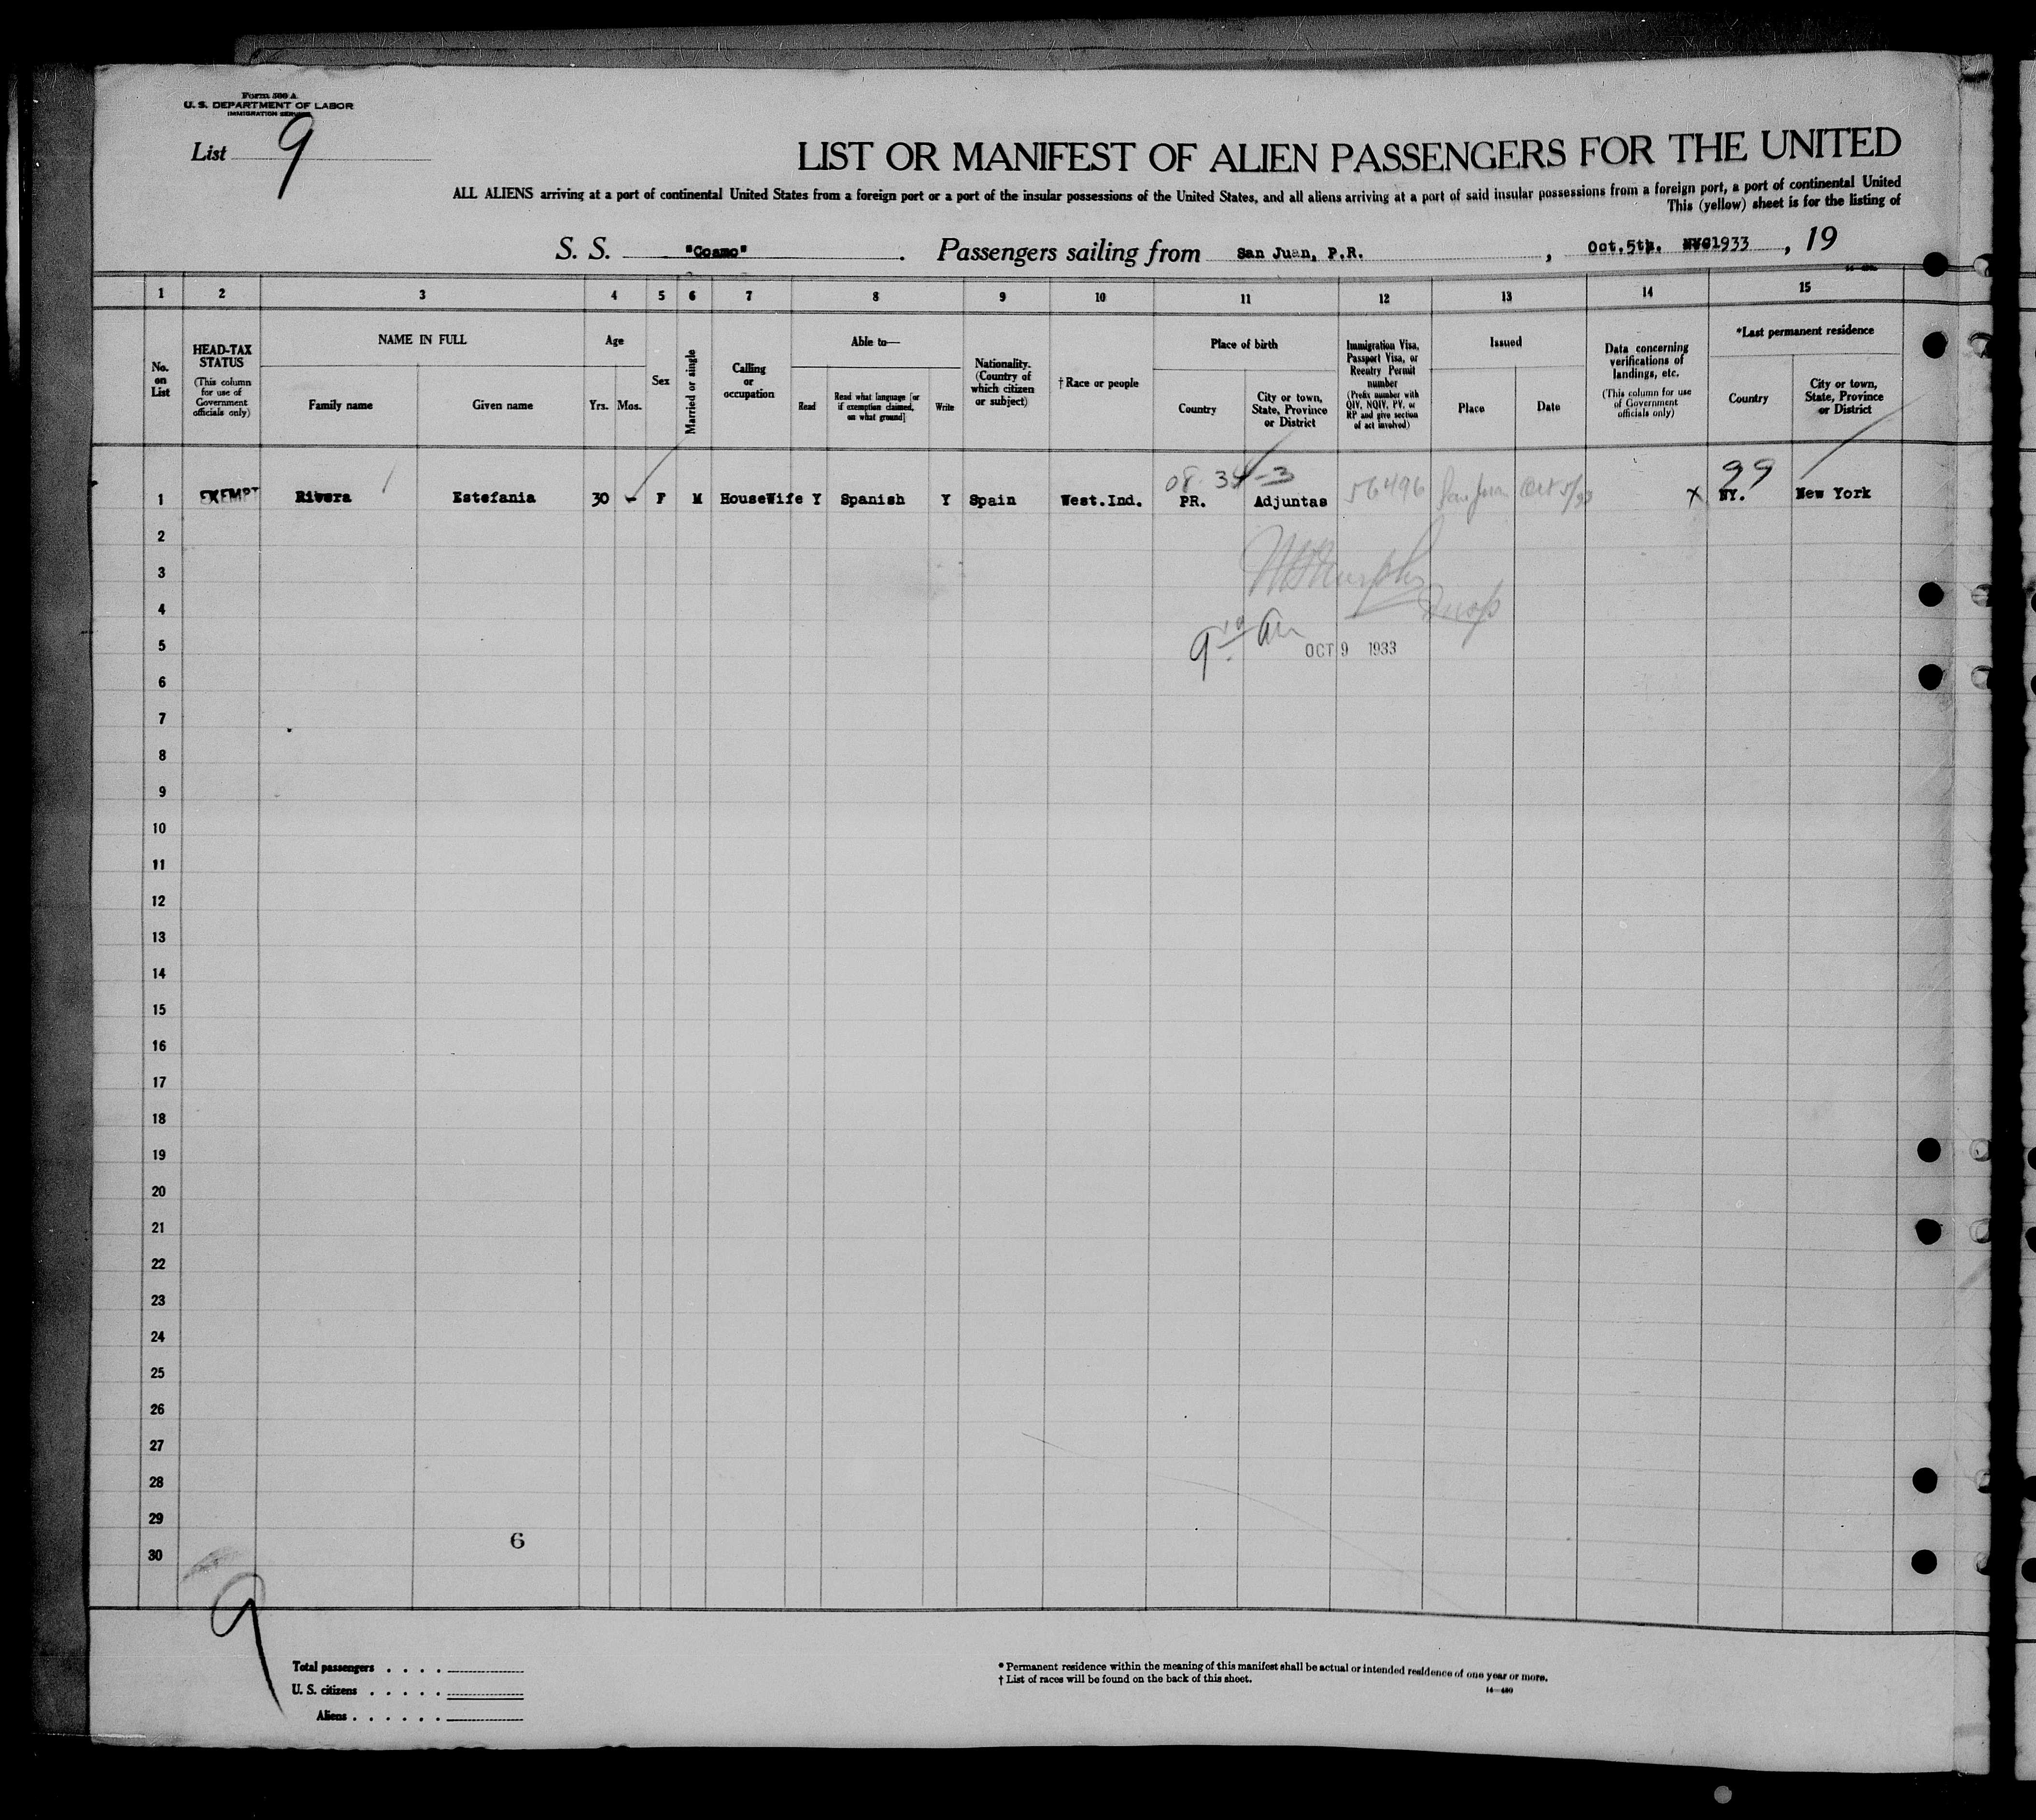 Form 500 A
U. S. DEPARTMENT OF LABOR
IMMIGRATION SERVICE
List 9
LIST OR MANIFEST OF ALIEN PASSENGERS FOR THE UNITED
ALL ALIENS arriving at a port of continental United States from a foreign port or a port of the insular possessions of the United States, and all aliens arriving at a port of said insular possessions from a foreign port, a port of continental United
This (yellow) sheet is for the listing of
S. S. "Coamo". Passengers sailing from San Juan, P.R., Oct.5th. 1933, 19
1 2 3 4 5 6 7 8 9 10 11 12 13 14 15
No. on List
HEAD-TAX STATUS
(This column for use of Government officials only)
NAME IN FULL
Family name
Given name
Age
Yrs. Mos.
Sex
Married or single
Calling or occupation
Able to—
Read
Read what language [or if exemption claimed, on what ground]
Write
Nationality. (Country of which citizen or subject)
†Race or people
Place of birth
Country
City or town, State, Province or District
Immigration Visa, Passport Visa, or Reentry Permit number
(Prefix number with QIV, NQIV, PV, or RP and give section of act involved)
Issued
Place
Date
Data concerning verifications of landings, etc.
(This column for use of Government officials only)
*Last permanent residence
Country
City or town, State, Province or District
08-34-3
99
1 EXEMPT Rivera Estefania 30 - F M HouseWife Y Spanish Y Spain West.Ind. PR. Adjuntas 56496 San Juan Oct 5/33 x NY. New York
2
3
4
5
OCT 9 1933
6
7
8
9
10
11
12
13
14
15
16
17
18
19
20
21
22
23
24
25
26
27
28
29
6
30
9
Total passengers . . . .
U. S. citizens . . . . .
Aliens . . . . . .
* Permanent residence within the meaning of this manifest shall be actual or intended residence of one year or more.
† List of races will be found on the back of this sheet.